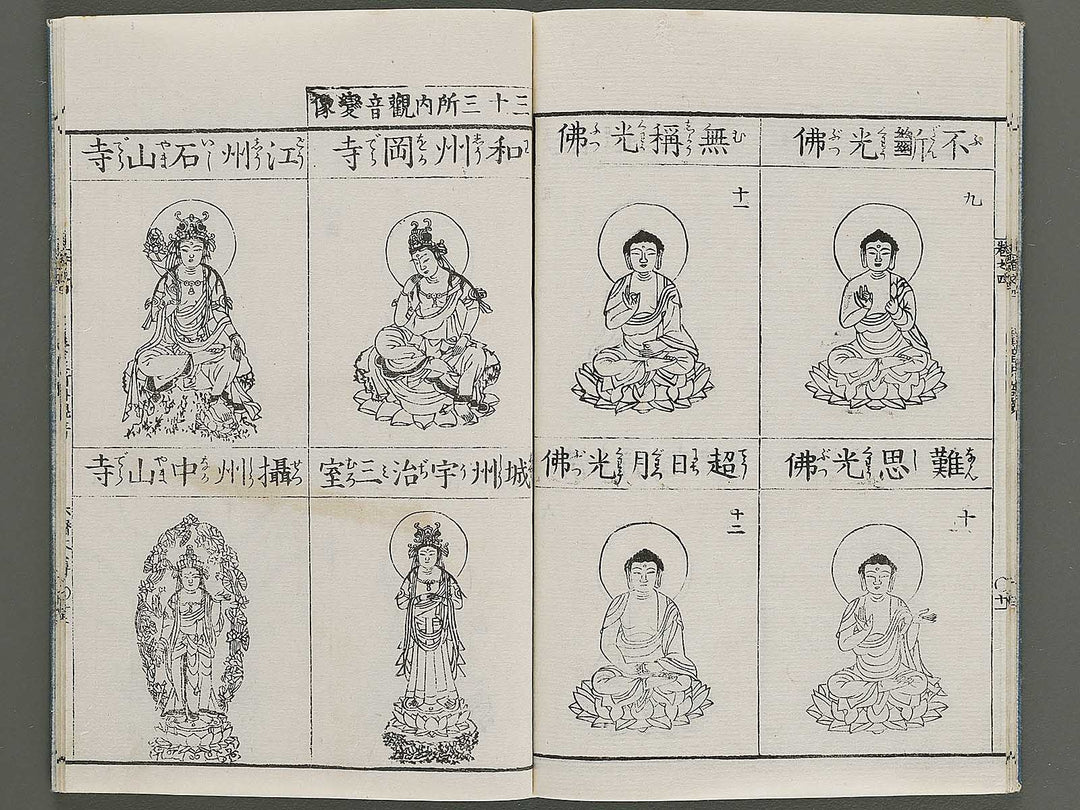 不斷光佛
九
難思光佛
十
無稱光佛
十一
超日月光佛
十二
三十三所内觀音變像
和州岡寺
城州宇治三室
江州石山寺
攝州中山寺